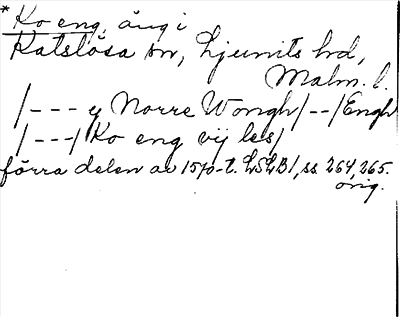 * Ko eng äng i
Katslösa sn, Ljunits hd,
Malm. l.
/--- y Norre Wongh/--/Engh
/---/ Ko eng vij les/
förra delen av 1570-t. LSLB1, ss 264, 265.
orig.